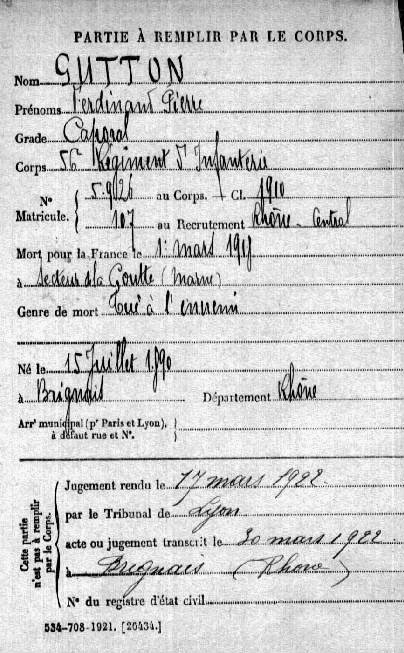 PARTIE À REMPLIR PAR LE CORPS.
Nom GUTTON
Prénoms Ferdinand Pierre
Grade Caporal
Corps 56e Régiment d'Infanterie
N° Matricule. { 5.926 au Corps. — Cl. 1910
107 au Recrutement Rhône - Central
Mort pour la France le 1er mars 1915
à secteur de la Goutte (Marne)
Genre de mort Tué à l'ennemi
Né le 15 Juillet 1890
à Brignais Département Rhône
Arrt municipal (pr Paris et Lyon), à défaut rue et N°.
Cette partie n'est pas à remplir par le Corps.
Jugement rendu le 17 mars 1922
par le Tribunal de Lyon
acte ou jugement transcrit le 30 mars 1922
à Brignais (Rhône)
N° du registre d'état civil
534-708-1921. [26434.]